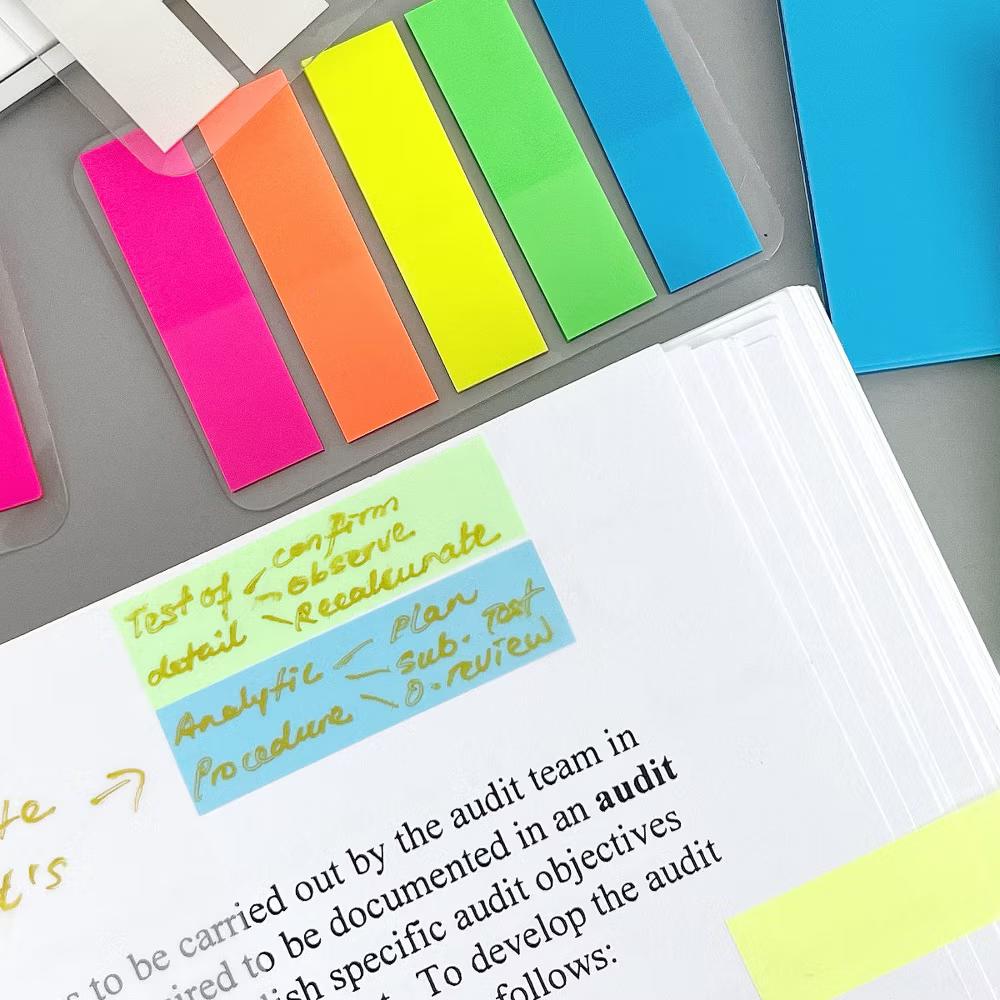 Test of confirm
observe
detail Recalcunate
Analytic plan
sub. Test
Procedure O. review
te →
t's
to be carried out by the audit team in
ired to be documented in an audit
ish specific audit objectives
To develop the audit
follows: